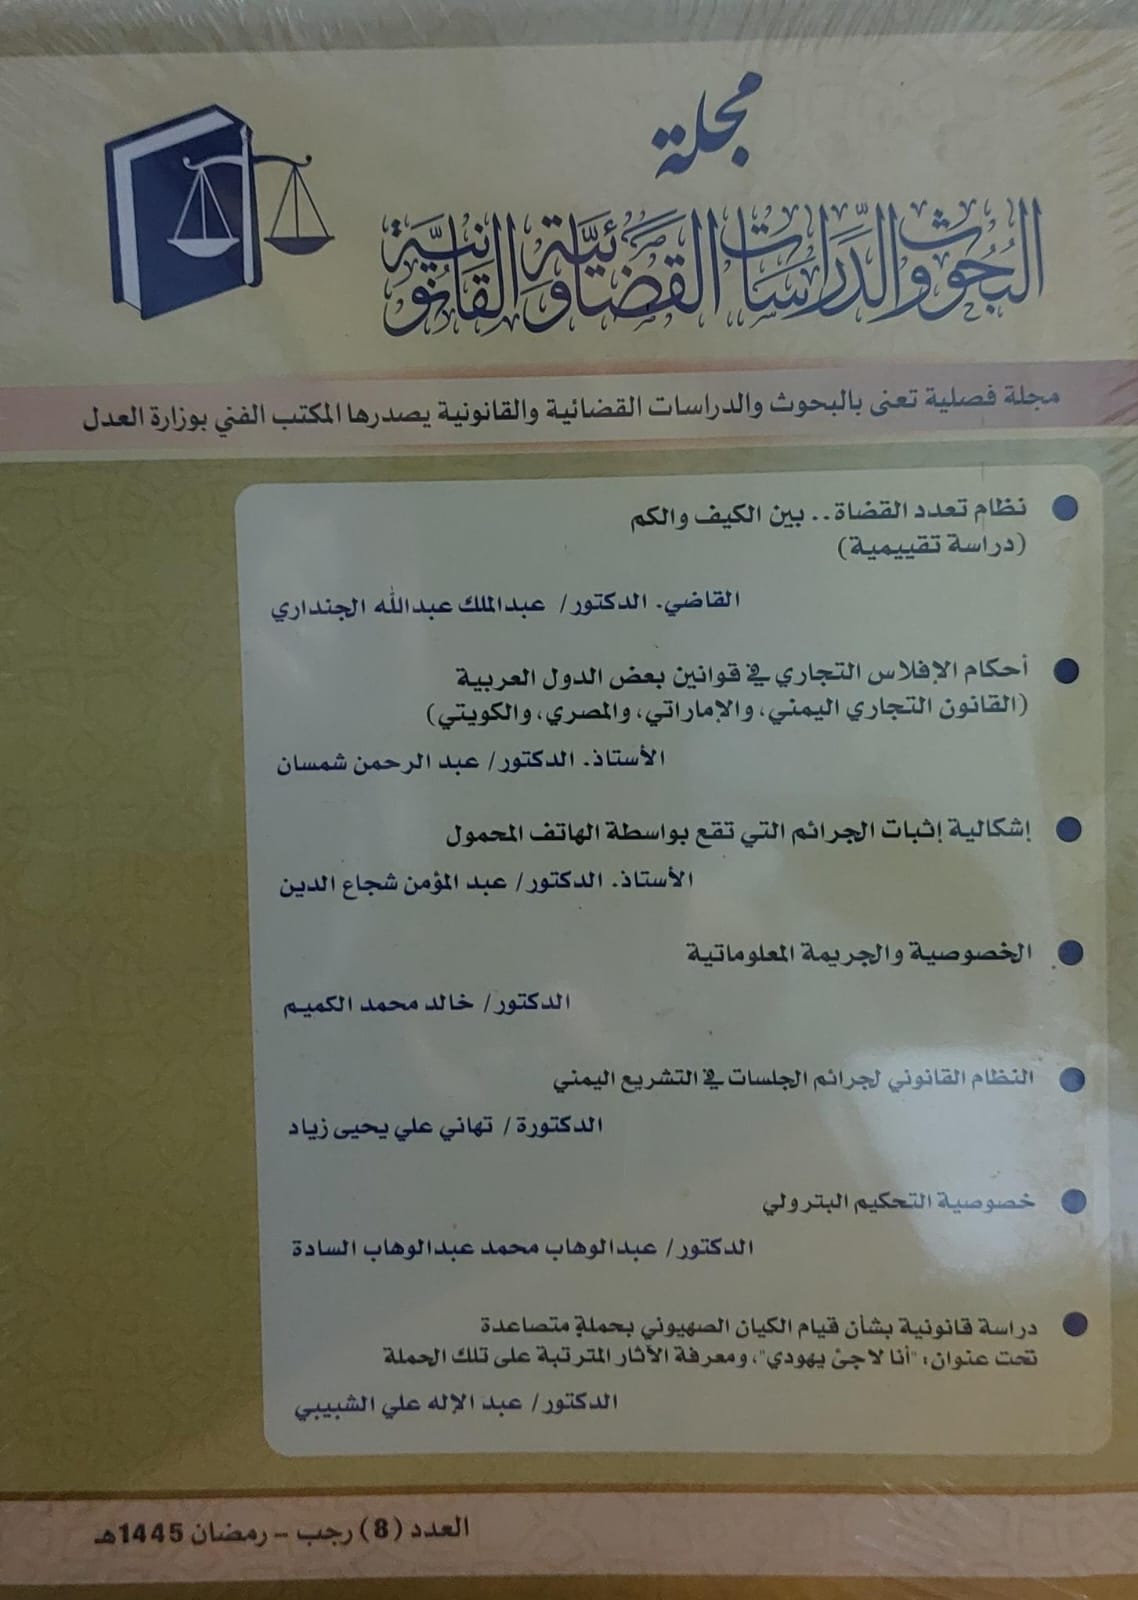 مجلة
البحوث والدراسات القضائية والقانونية
مجلة فصلية تعنى بالبحوث والدراسات القضائية والقانونية يصدرها المكتب الفني بوزارة العدل
نظام تعدد القضاة.. بين الكيف والكم
(دراسة تقييمية)
القاضي. الدكتور/ عبدالملك عبدالله الجنداري
أحكام الإفلاس التجاري في قوانين بعض الدول العربية
(القانون التجاري اليمني، والإماراتي، والمصري، والكويتي)
الأستاذ. الدكتور/ عبد الرحمن شمسان
إشكالية إثبات الجرائم التي تقع بواسطة الهاتف المحمول
الأستاذ. الدكتور/ عبد المؤمن شجاع الدين
الخصوصية والجريمة المعلوماتية
الدكتور/ خالد محمد الكميم
النظام القانوني لجرائم الجلسات في التشريع اليمني
الدكتورة/ تهاني علي يحيى زياد
خصوصية التحكيم البترولي
الدكتور/ عبدالوهاب محمد عبدالوهاب السادة
دراسة قانونية بشأن قيام الكيان الصهيوني بحملةٍ متصاعدة
تحت عنوان: "أنا لاجئ يهودي"، ومعرفة الآثار المترتبة على تلك الحملة
الدكتور/ عبد الإله علي الشبيبي
العدد (8) رجب - رمضان 1445هـ